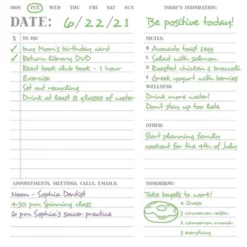 MON TUE WED THU FRI SAT SUN
DATE: 6/22/21
X TO DO:
✓ buy Mom's birthday card
✓ Return library DVD
Read book club book - 1 hour
Exercise
Set out recycling
Drink at least 8 glasses of water
APPOINTMENTS, MEETINGS, CALLS, EMAILS:
Noon - Sophia Dentist
4:30 pm Spinning class
6 pm Sophia's soccer practice
TODAY'S INSPIRATION:
Be positive today!
MEALS:
B Avocado toast egg
L Salad with salmon
D Roasted chicken & broccoli
S Greek yogurt with berries
WELLNESS:
Drink more water!
Don't stay up too late
OTHER:
Start planning family
cookout for the 4th of July
TOMORROW:
Take bagels to work!
4 cheese
3 cinnamon raisin
2 cinnamon crunch
3 everything